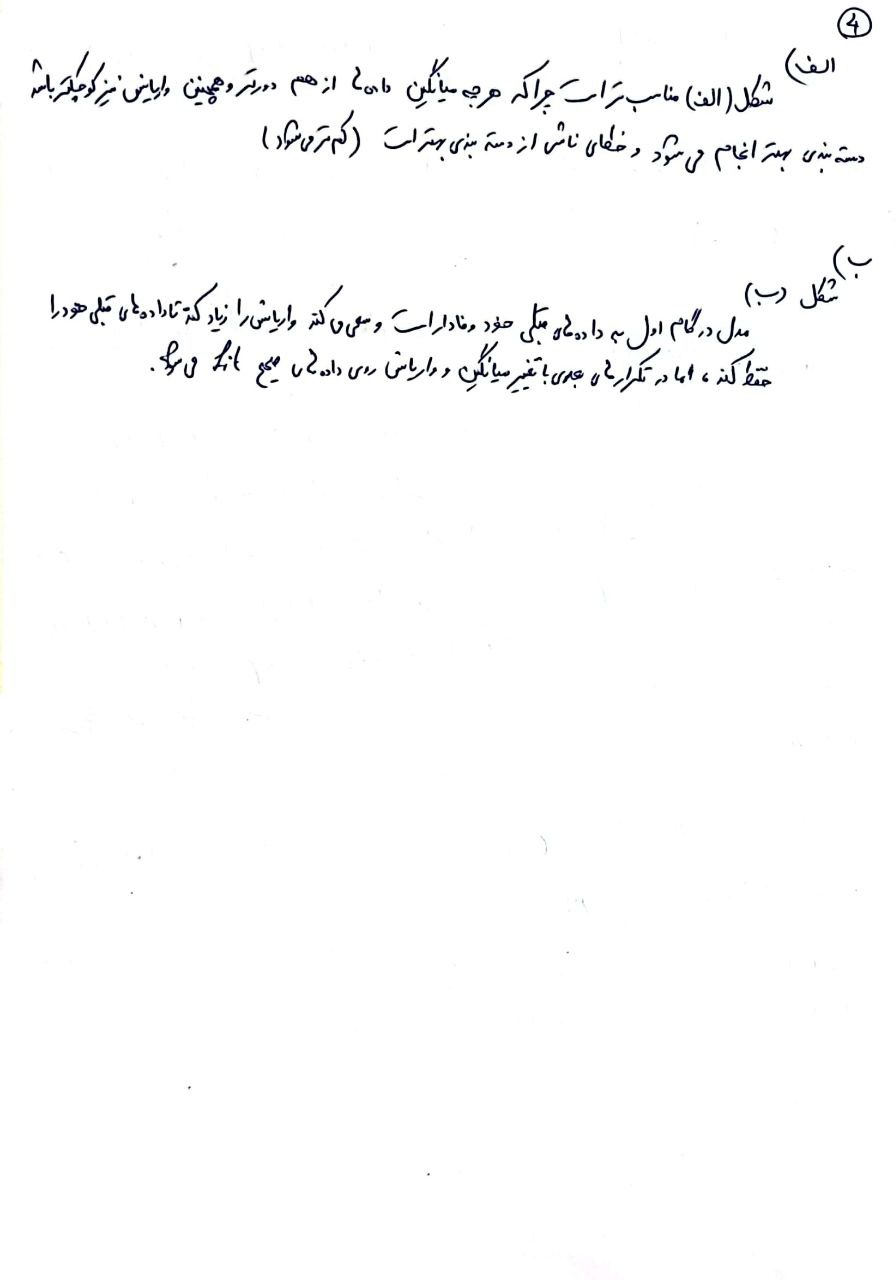 ④
الف)
شکل (الف) مناسب تر است چرا که هر چه میانگین داده ها از هم دورتر و همچنین واریانس نیز کوچکتر باشد
دسته بندی بهتر انجام می شود و خطای ناشی از دسته بندی بهتر است (کم تر می شود)
ب)
شکل (ب)
مدل در گام اول به داده های قبلی خود وفادار است و سعی می کند واریانس را زیاد کند تا داده های قبلی خود را
حفظ کند، اما در تکرارهای بعدی با تغییر میانگین و واریانس روی داده های صحیح می شود.